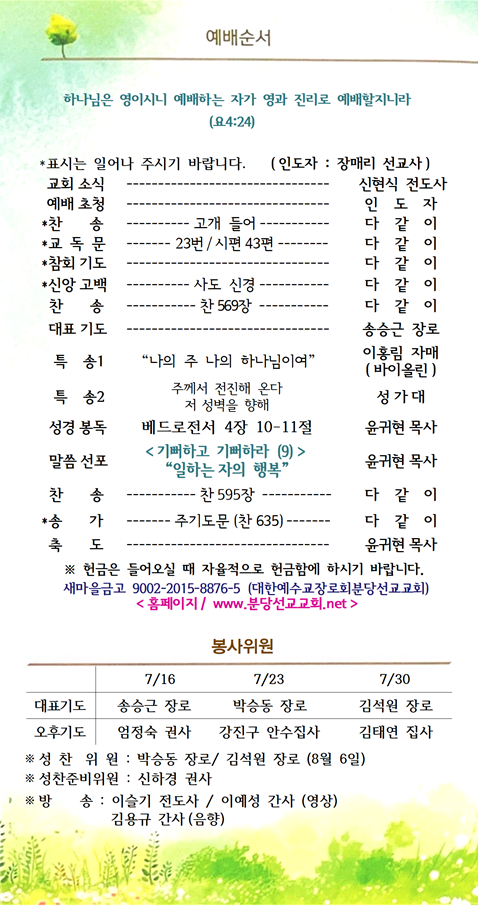 예배순서
하나님은 영이시니 예배하는 자가 영과 진리로 예배할지니라
(요4:24)
*표시는 일어나 주시기 바랍니다. (인도자 : 장매리 선교사)
교회 소식 -------------------------------- 신현식 전도사
예배 초청 -------------------------------- 인 도 자
*찬 송 ---------- 고개 들어 ----------- 다 같 이
*교 독 문 ------- 23번 / 시편 43편 -------- 다 같 이
*참회 기도 -------------------------------- 다 같 이
*신앙 고백 ---------- 사도 신경 ----------- 다 같 이
찬 송 ----------- 찬 569장 ----------- 다 같 이
대표 기도 -------------------------------- 송승근 장로
특 송1 “나의 주 나의 하나님이여” 이홍림 자매
(바이올린)
특 송2 주께서 전진해 온다 성가대
저 성벽을 향해
성경 봉독 베드로전서 4장 10-11절 윤귀현 목사
말씀 선포 <기뻐하고 기뻐하라 (9)> 윤귀현 목사
“일하는 자의 행복”
찬 송 ----------- 찬 595장 ----------- 다 같 이
*송 가 ------- 주기도문 (찬 635) ------- 다 같 이
축 도 -------------------------------- 윤귀현 목사
※ 헌금은 들어오실 때 자율적으로 헌금함에 하시기 바랍니다.
새마을금고 9002-2015-8876-5 (대한예수교장로회분당선교교회)
< 홈페이지 / www.분당선교교회.net >
봉사위원
7/16 7/23 7/30
대표기도 송승근 장로 박승동 장로 김석원 장로
오후기도 엄정숙 권사 강진구 안수집사 김태연 집사
※ 성 찬 위 원 : 박승동 장로/ 김석원 장로 (8월 6일)
※ 성찬준비위원 : 신하경 권사
※ 방 송 : 이슬기 전도사 / 이예성 간사 (영상)
김용규 간사 (음향)